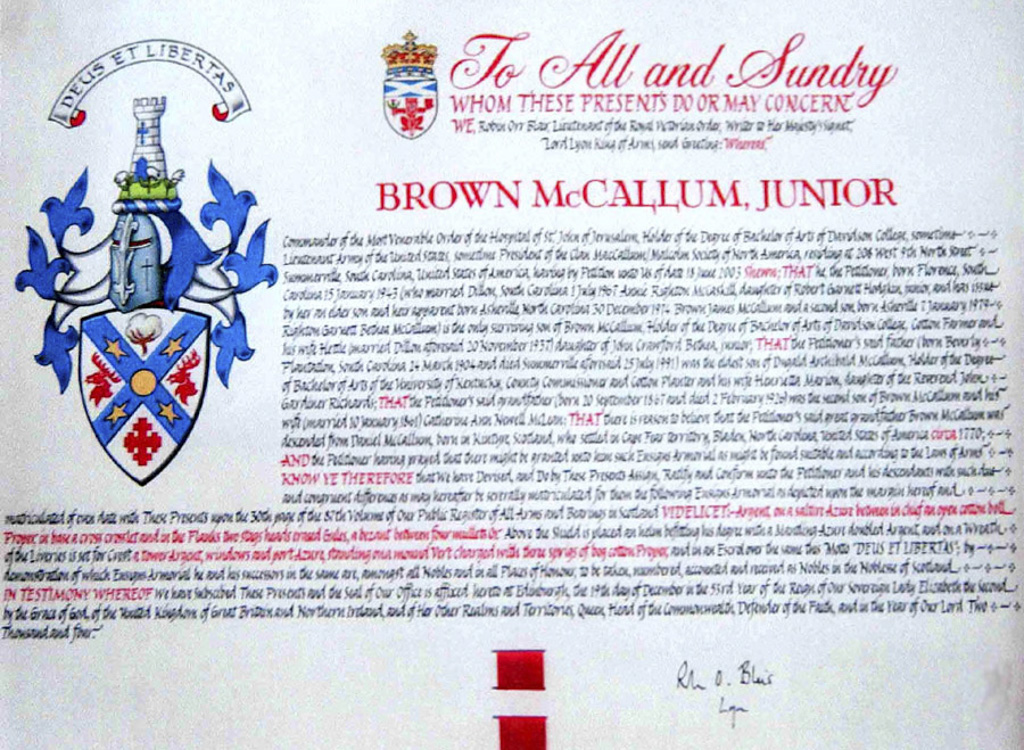 DEUS ET LIBERTAS
To All and Sundry
WHOM THESE PRESENTS DO OR MAY CONCERN
WE, Robin Orr Blair, Lieutenant of the Royal Victorian Order, Writer to Her Majesty's Signet,
Lord Lyon King of Arms, send Greeting: Whereas,
BROWN McCALLUM, JUNIOR
Commander of the Most Venerable Order of the Hospital of St. John of Jerusalem, Holder of the Degree of Bachelor of Arts of Davidson College, sometime
Lieutenant Army of the United States, sometime President of the Clan MacCallum/Malcolm Society of North America, residing at 208 West 9th North Street
Summerville, South Carolina, United States of America, having by Petition unto Us of date 18 June 2003 Shewn; THAT he the Petitioner, born Florence, South
Carolina 15 January 1943 (who married Dillon, South Carolina 1 July 1967 Annie Righton McCaskill, daughter of Robert Garnett Hodgkin, junior, and has issue
by her an elder son and heir apparent born Asheville, North Carolina 30 December 1974 Brown James McCallum and a second son, born Asheville 7 January 1979
Righton Garnett Bethea McCallum) is the only surviving son of Brown McCallum, Holder of the Degree of Bachelor of Arts of Davidson College, Cotton Farmer and
his wife Hettie (married Dillon aforesaid 20 November 1937) daughter of John Crawford Bethea, junior; THAT the Petitioner's said father (born Beverly
Plantation, South Carolina 24 March 1904 and died Summerville aforesaid 25 July 1991) was the eldest son of Dugald Archibald McCallum, Holder of the Degree
of Bachelor of Arts of the University of Kentucky, County Commissioner and Cotton Planter and his wife Henrietta Marion, daughter of the Reverend John
Gardiner Richards; THAT the Petitioner's said grandfather (born 20 September 1867 and died 2 February 1926) was the second son of Brown McCallum and his
wife (married 10 January 1861) Catherine Ann Newell McLean; THAT there is reason to believe that the Petitioner's said great grandfather Brown McCallum was
descended from Daniel McCallum, born in Kintyre, Scotland, who settled in Cape Fear territory, Bladen, North Carolina, United States of America circa 1770;
AND the Petitioner having prayed that there might be granted unto him such Ensigns Armorial as might be found suitable and according to the Laws of Arms
KNOW YE THEREFORE that We have Devised, and Do by These Presents Assign, Ratify and Confirm unto the Petitioner and his descendants with such due
and congruent difference as may hereafter be severally matriculated for them the following Ensigns Armorial as depicted upon the margin hereof and
matriculated of even date with These Presents upon the 30th page of the 87th Volume of Our Public Register of All Arms and Bearings in Scotland VIDELICET:- Argent, on a saltire Azure between in chief an open cotton boll
Proper, in base a cross crosslet and in the flanks two stags heads erased Gules, a bezant between four mullets Or. Above the Shield is placed an helm befitting his degree with a Mantling Azure doubled Argent, and on a Wreath
of the Liveries is set for Crest a tower Argent, windows and port Azure, standing on a mound Vert charged with three sprigs of bog cotton Proper, and in an Escrol over the same this Motto "DEUS ET LIBERTAS"; by
demonstration of which Ensigns Armorial he and his successors in the same are, amongst all Nobles and in all Places of Honour, to be taken, numbered, accounted and received as Nobles in the Noblesse of Scotland.
IN TESTIMONY WHEREOF We have Subscribed These Presents and the Seal of Our Office is affixed hereto at Edinburgh, the 19th day of December in the 53rd Year of the Reign of Our Sovereign Lady Elizabeth the Second
by the Grace of God, of the United Kingdom of Great Britain and Northern Ireland, and of Her Other Realms and Territories, Queen, Head of the Commonwealth, Defender of the Faith, and in the Year of Our Lord Two
Thousand and four.
Robin O. Blair
Lyon